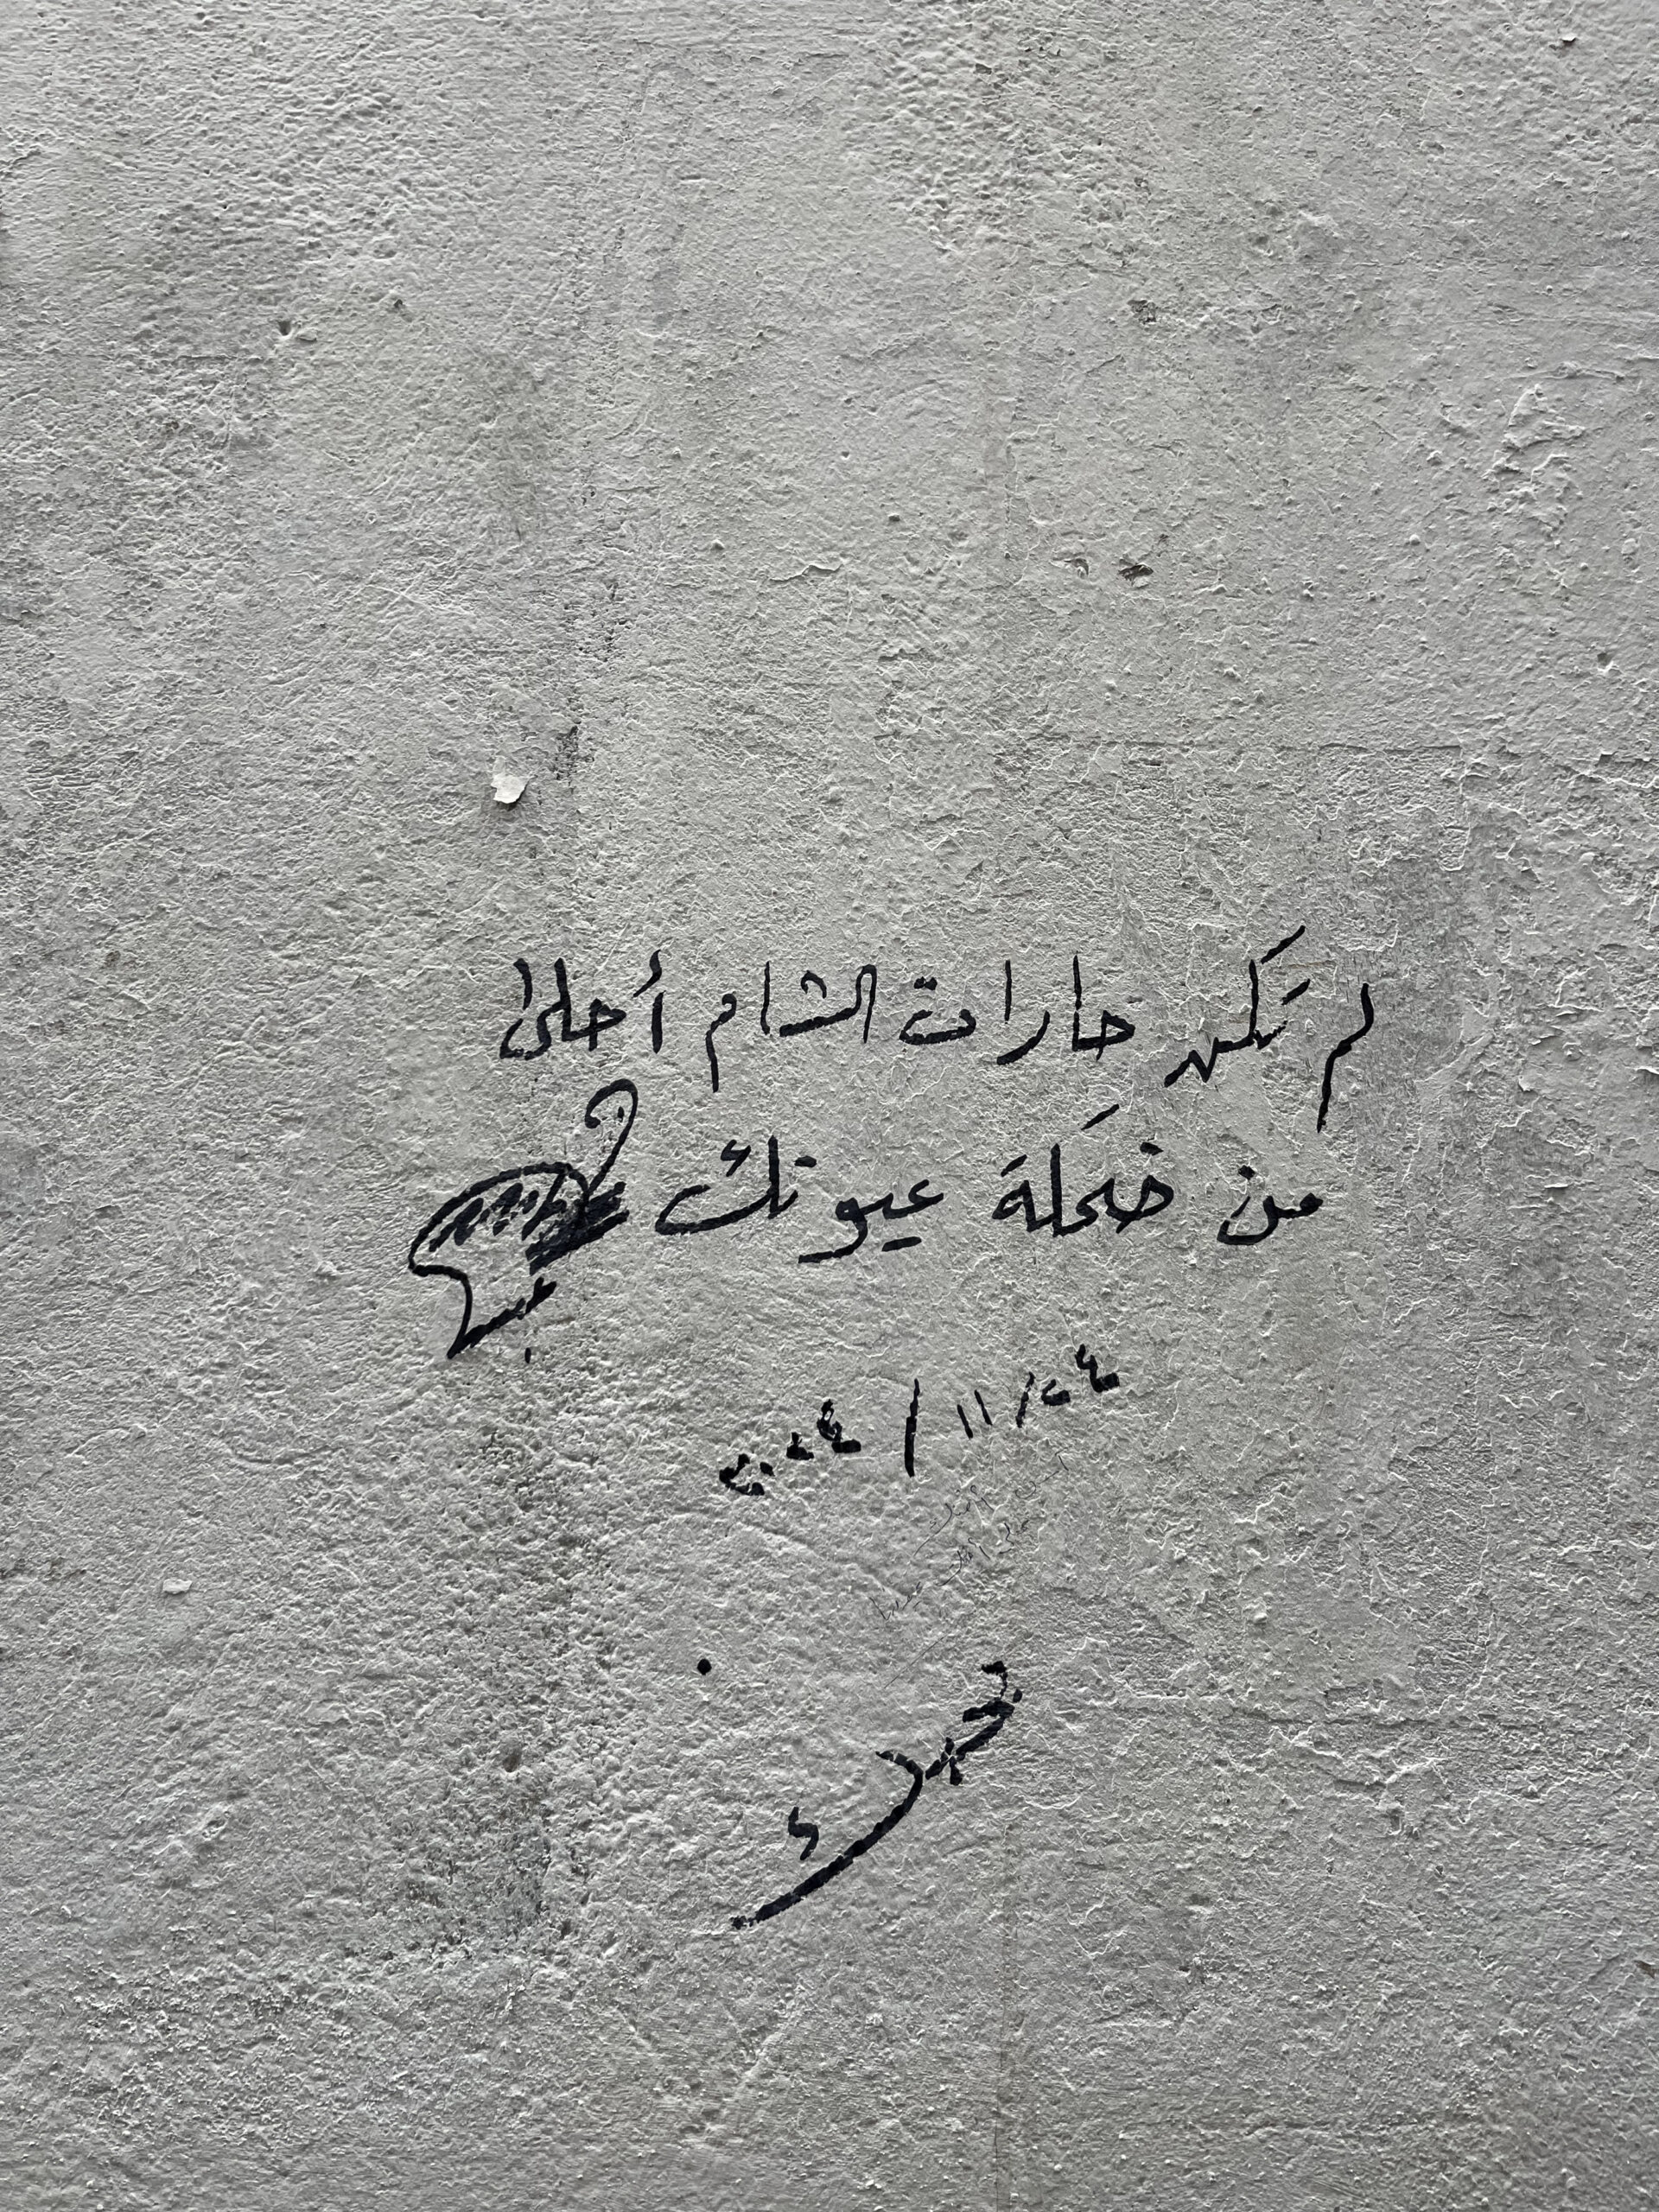 لم تَكن حارات الشام أحلى
من ضحَلة عيونك
٢٤/١١/٢٠٢٤